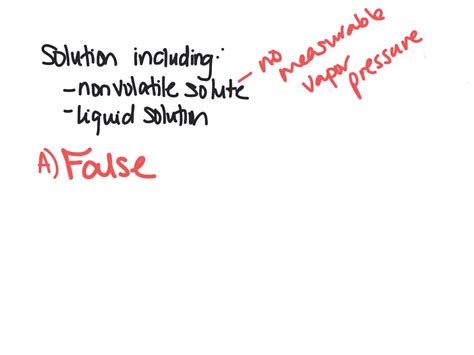 Solution including:
- nonvolatile solute - no measurable vapor pressure
- liquid solution
A) False